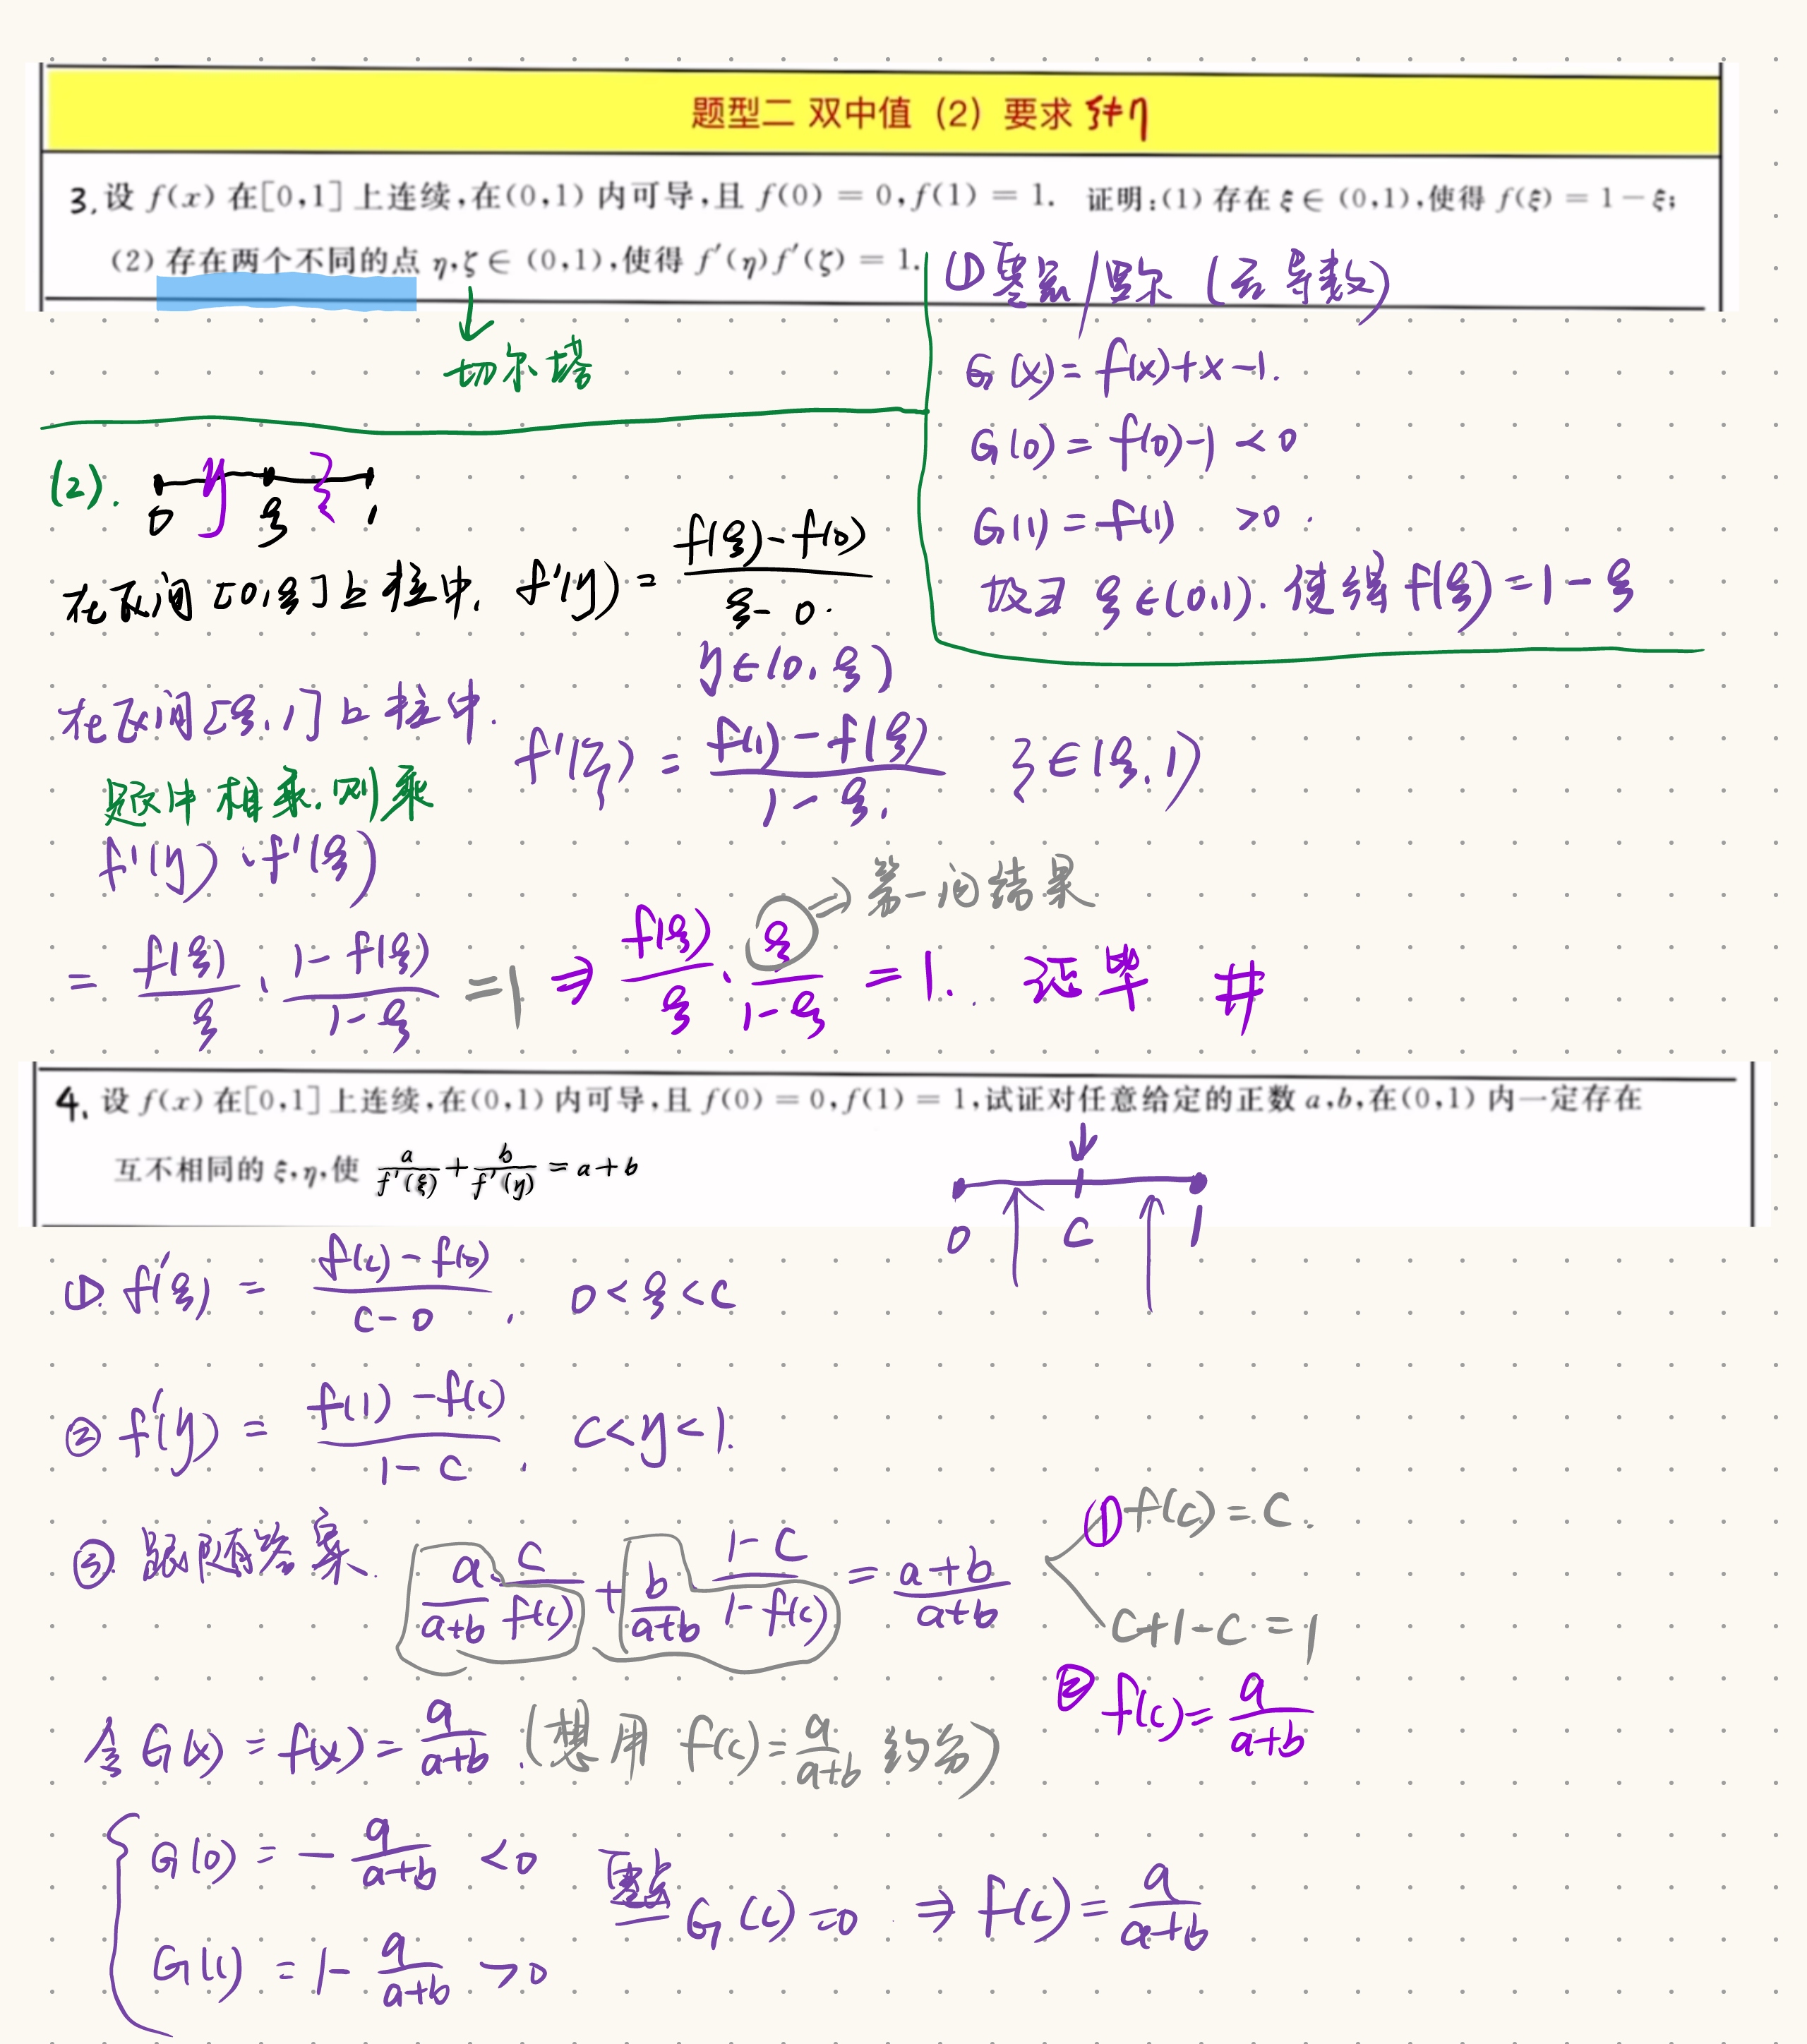 题型二 双中值（2）要求 ξ≠η
3. 设 f(x) 在[0,1]上连续,在(0,1)内可导,且 f(0) = 0,f(1) = 1. 证明:(1) 存在 ξ ∈ (0,1),使得 f(ξ) = 1 − ξ;
(2) 存在两个不同的点 η,ζ ∈ (0,1),使得 f′(η)f′(ζ) = 1.
切尔塔
① 零点/罗尔 (去导数)
G(x) = f(x)+x−1.
G(0) = f(0)−1 < 0
G(1) = f(1) >0.
故∃ ξ∈(0,1). 使得 f(ξ) = 1−ξ
(2).
0 η ξ ζ 1
在区间[0,ξ]上拉中, f′(η) = \frac{f(ξ)−f(0)}{ξ−0}.
η∈(0,ξ)
在区间[ξ,1]上拉中. f′(ζ) = \frac{f(1)−f(ξ)}{1−ξ}. ζ∈(ξ,1)
题中相乘.则乘
f′(η)·f′(ξ)
= \frac{f(ξ)}{ξ}·\frac{1−f(ξ)}{1−ξ} =1 ⇒ \frac{f(ξ)}{ξ}·\frac{ξ}{1−ξ} = 1. 证毕 #
⇒ 第一问结果
4. 设 f(x) 在[0,1]上连续,在(0,1)内可导,且 f(0) = 0,f(1) = 1,试证对任意给定的正数 a,b,在(0,1)内一定存在
互不相同的 ξ,η,使 \frac{a}{f′(ξ)}+\frac{b}{f′(η)}=a+b
0 C 1
①. f′(ξ) = \frac{f(c)−f(0)}{c−0}, 0<ξ<c
② f′(η) = \frac{f(1)−f(c)}{1−c}, c<η<1.
③ 跟随答案. \frac{a}{a+b}·\frac{c}{f(c)} + \frac{b}{a+b}·\frac{1−c}{1−f(c)} = \frac{a+b}{a+b}
① f(c)=c.
c+1−c=1
② f(c)=\frac{a}{a+b}
令 G(x) = f(x) = \frac{a}{a+b}. (想用 f(c)=\frac{a}{a+b} 约分)
G(0) = −\frac{a}{a+b} <0
零点 G(c)=0 ⇒ f(c) = \frac{a}{a+b}
G(1) = 1−\frac{a}{a+b} >0